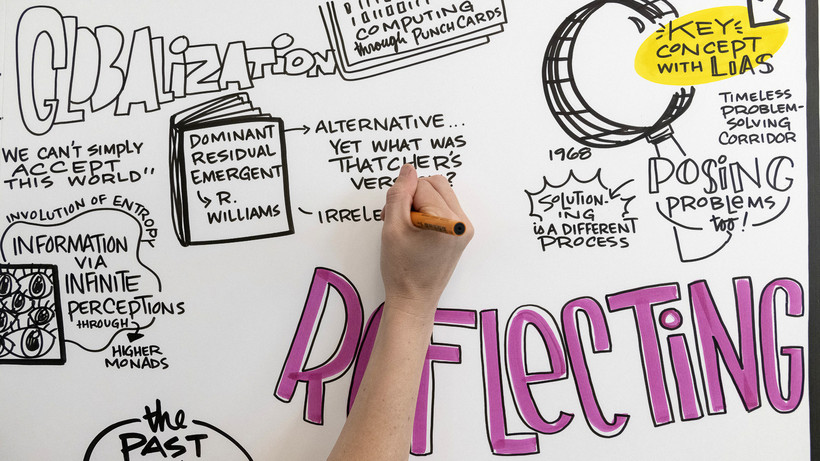 GLOBALIZATION
COMPUTING
through PUNCH CARDS
KEY
CONCEPT
WITH LIAS
TIMELESS
PROBLEM-
SOLVING
CORRIDOR
WE CAN'T SIMPLY
ACCEPT
THIS WORLD"
DOMINANT
RESIDUAL
EMERGENT
R.
WILLIAMS
ALTERNATIVE...
YET WHAT WAS
THATCHER'S
IRRELE
1968
SOLUTION-
ING
is A DIFFERENT
PROCESS
POSING
PROBLEMS
too!
INVOLUTION OF ENTROPY
INFORMATION
VIA
INFINITE
PERCEPTIONS
THROUGH
HIGHER
MONADS
REFLECTING
the
PAST